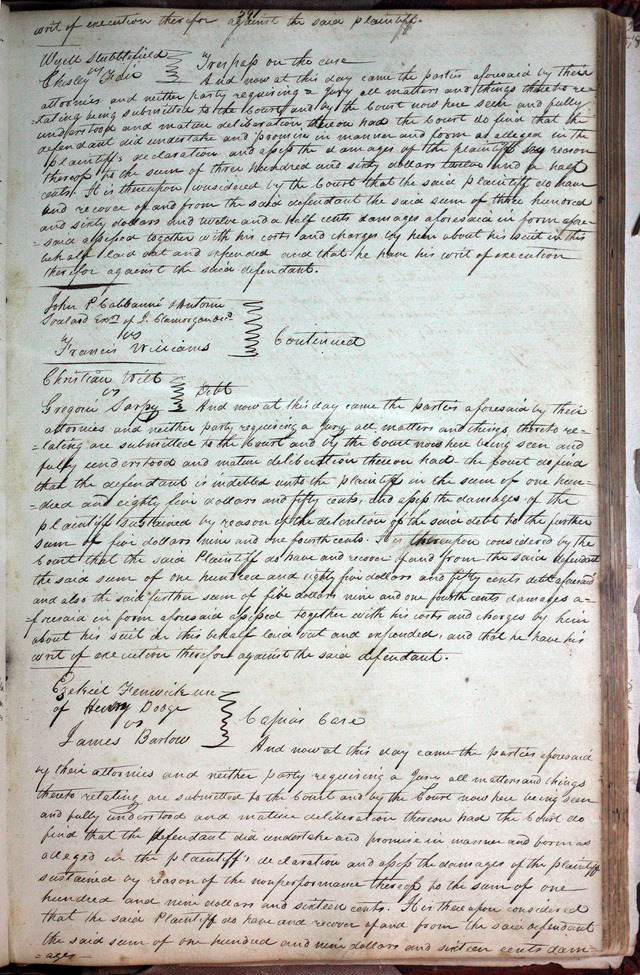 291
writ of execution therefor against the said plaintiff.
Wyett Stubblefield
vs
Chesley
Trespass on the case
And now at this day came the parties aforesaid by their
attornies and neither party requiring a Jury all matters and things thereto re-
lating being submitted to the Court and by the Court now here seen and fully
understood and mature deliberation thereon had the Court do find that the
defendant did undertake and promise in manner and form as alleged in the
plaintiff's declaration and assess the damages of the plaintiff by reason
thereof to the sum of three hundred and sixty dollars twelve and a half
cents. It is thereupon considered by the Court that the said plaintiff do have
and recover of and from the said defendant the said sum of three hundred
and sixty dollars and twelve and a half cents damages aforesaid in form afore-
said assessed together with his costs and charges by him about his suit in this
behalf laid out and expended and that he have his writ of execution
therefor against the said defendant.
John P Cabbanné & Antoine
Soulard Exrs of J. Clamorgan decd
vs
Francis Williams
Continued
Christian Wilt
vs
Gregoire Sarpy
Debt
And now at this day came the parties aforesaid by their
attornies and neither party requiring a Jury all matters and things thereto re-
-lating are submitted to the Court and by the Court now here being seen and
fully understood and mature deliberation thereon had the Court do find
that the defendant is indebted unto the plaintiff in the sum of one hun-
-dred and eighty five dollars and fifty cents, and assess the damages of the
plaintiff sustained by reason of the detention of the said debt to the further
sum of five dollars nine and one fourth cents. It is thereupon considered by the
Court that the said Plaintiff do have and recover of and from the said defendant
the said sum of one hundred and eighty five dollars and fifty cents debt aforesaid
and also the said further sum of five dollars nine and one fourth cents damages a-
-foresaid in form aforesaid assessed together with his costs and charges by him
about his suit in this behalf laid out and expended, and that he have his
writ of execution therefor against the said defendant.
Ezekiel Fenwick use
of Henry Dodge
vs
James Barlow
Capias Case
And now at this day came the parties aforesaid
by their attornies and neither party requiring a Jury all matters and things
thereto relating are submitted to the Court and by the Court now here being seen
and fully understood and mature deliberation thereon had the Court do
find that the defendant did undertake and promise in manner and form as
alleged in the plaintiff's declaration and assess the damages of the plaintiff
sustained by reason of the nonperformance thereof to the sum of one
hundred and nine dollars and sixteen cents. It is thereupon considered
that the said Plaintiff do have and recover of and from the said defendant
the said sum of one hundred and nine dollars and sixteen cents dam-
-ages